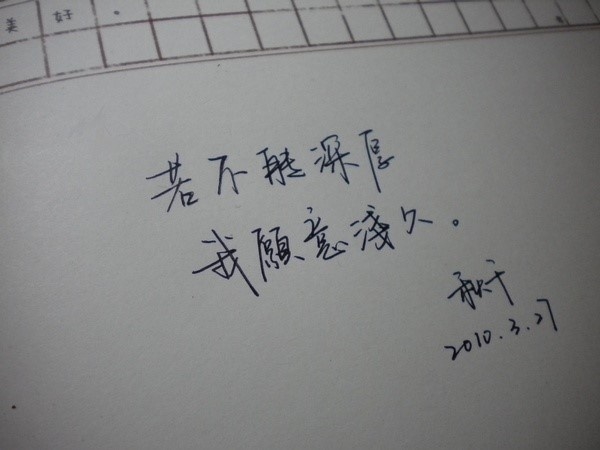 美好。
若不能深厚
我願意淺久。
秋千
2010.3.27